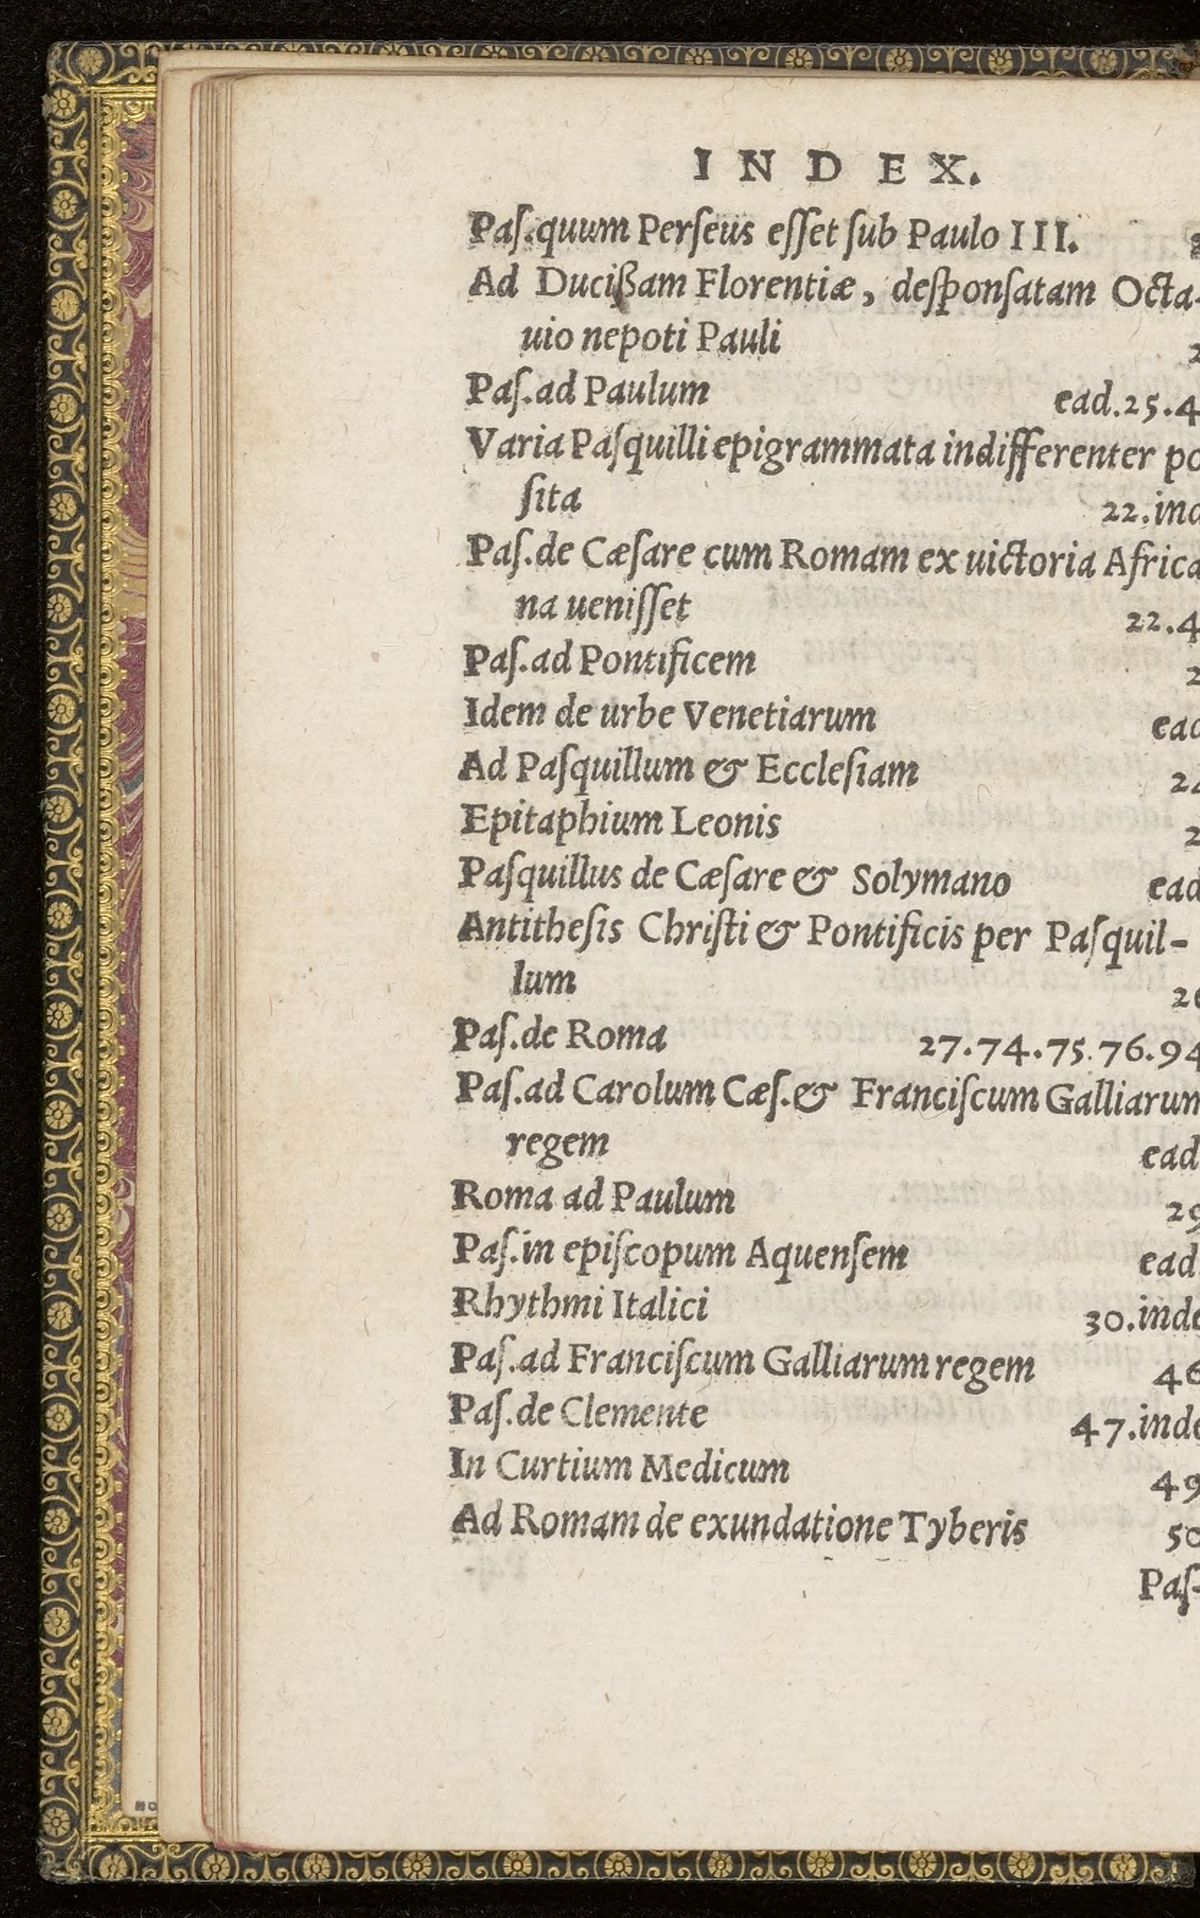 INDEX.
Paſ.quum Perſeus eſſet ſub Paulo III.
Ad Ducißam Florentiæ, deſponſatam Octa-
uio nepoti Pauli
Paſ.ad Paulum ead.25.4
Varia Paſquilli epigrammata indifferenter po
ſita 22.ind
Paſ.de Cæſare cum Romam ex uictoria Africa
na ueniſſet 22.4
Paſ.ad Pontificem 2
Idem de urbe Venetiarum ead
Ad Paſquillum & Eccleſiam 24
Epitaphium Leonis 2
Paſquillus de Cæſare & Solymano ead
Antitheſis Chriſti & Pontificis per Paſquil-
lum 26
Paſ.de Roma 27.74.75.76.94
Paſ.ad Carolum Cæſ.& Franciſcum Galliarum
regem ead.
Roma ad Paulum 29
Paſ.in epiſcopum Aquenſem ead.
Rhythmi Italici 30.inde
Paſ.ad Franciſcum Galliarum regem 46
Paſ.de Clemente 47.inde
In Curtium Medicum 49
Ad Romam de exundatione Tyberis 50
Paſ-